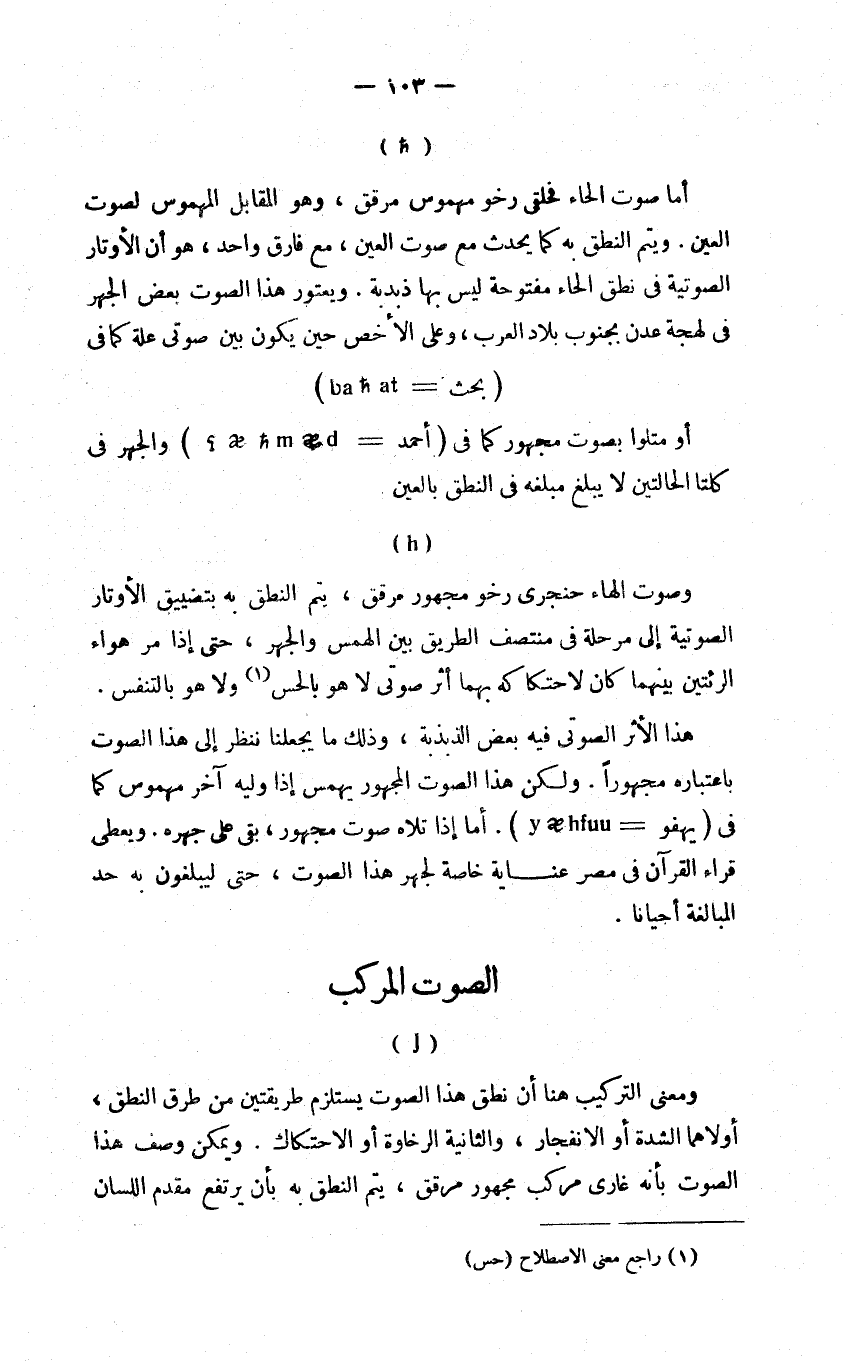 — ١٠٣ —
( ħ )
أما صوت الحاء فحلقى رخو مهموس مرقق ، وهو المقابل المهموس لصوت
العين . ويتم النطق به كما يحدث مع صوت العين ، مع فارق واحد ، هو أن الأوتار
الصوتية فى نطق الحاء مفتوحة ليس بها ذبذبة . ويعتور هذا الصوت بعض الجهر
فى لهجة عدن بجنوب بلاد العرب ، وعلى الأخص حين يكون بين صوتى علة كما فى
( بحث = baħat )
أو متلوا بصوت مجهور كما فى ( أحمد = ʕ æ ħ m æ d ) والجهر فى
كلتا الحالتين لا يبلغ مبلغه فى النطق بالعين
( h )
وصوت الهاء حنجرى رخو مجهور مرقق ، يتم النطق به بتضييق الأوتار
الصوتية إلى مرحلة فى منتصف الطريق بين الهمس والجهر ، حتى إذا مر هواء
الرئتين بينهما كان لاحتكاكه بهما أثر صوتى لا هو بالحس (١) ولا هو بالتنفس .
هذا الأثر الصوتى فيه بعض الذبذبة ، وذلك ما يجعلنا ننظر إلى هذا الصوت
باعتباره مجهوراً . ولكن هذا الصوت المجهور يهمس إذا وليه آخر مهموس كما
فى ( يهفو = yæhfuu ) . أما إذا تلاه صوت مجهور ، بقى على جهره . ويعطى
قراء القرآن فى مصر عنـــاية خاصة لجهر هذا الصوت ، حتى ليبلغون به حد
المبالغة أحيانا .
الصوت المركب
( J )
ومعنى التركيب هنا أن نطق هذا الصوت يستلزم طريقتين من طرق النطق ،
أولاهما الشدة أو الانفجار ، والثانية الرخاوة أو الاحتكاك . ويمكن وصف هذا
الصوت بأنه غارى مركب مجهور مرقق ، يتم النطق به بأن يرتفع مقدم اللسان
(١) راجع معنى الاصطلاح (حس)